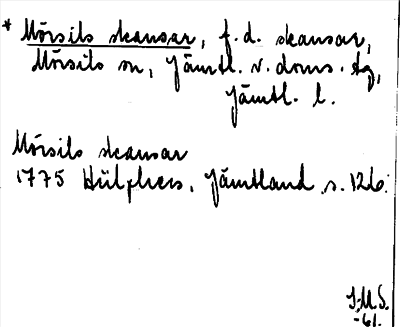 * Mörsils skansar, f.d. skansar,
Mörsils sn, Jämtl. v. doms. tg,
Jämtl. l.
Mörsils skansar
1775 Hülphers, Jämtland s. 126.
J.M.S.
-61.